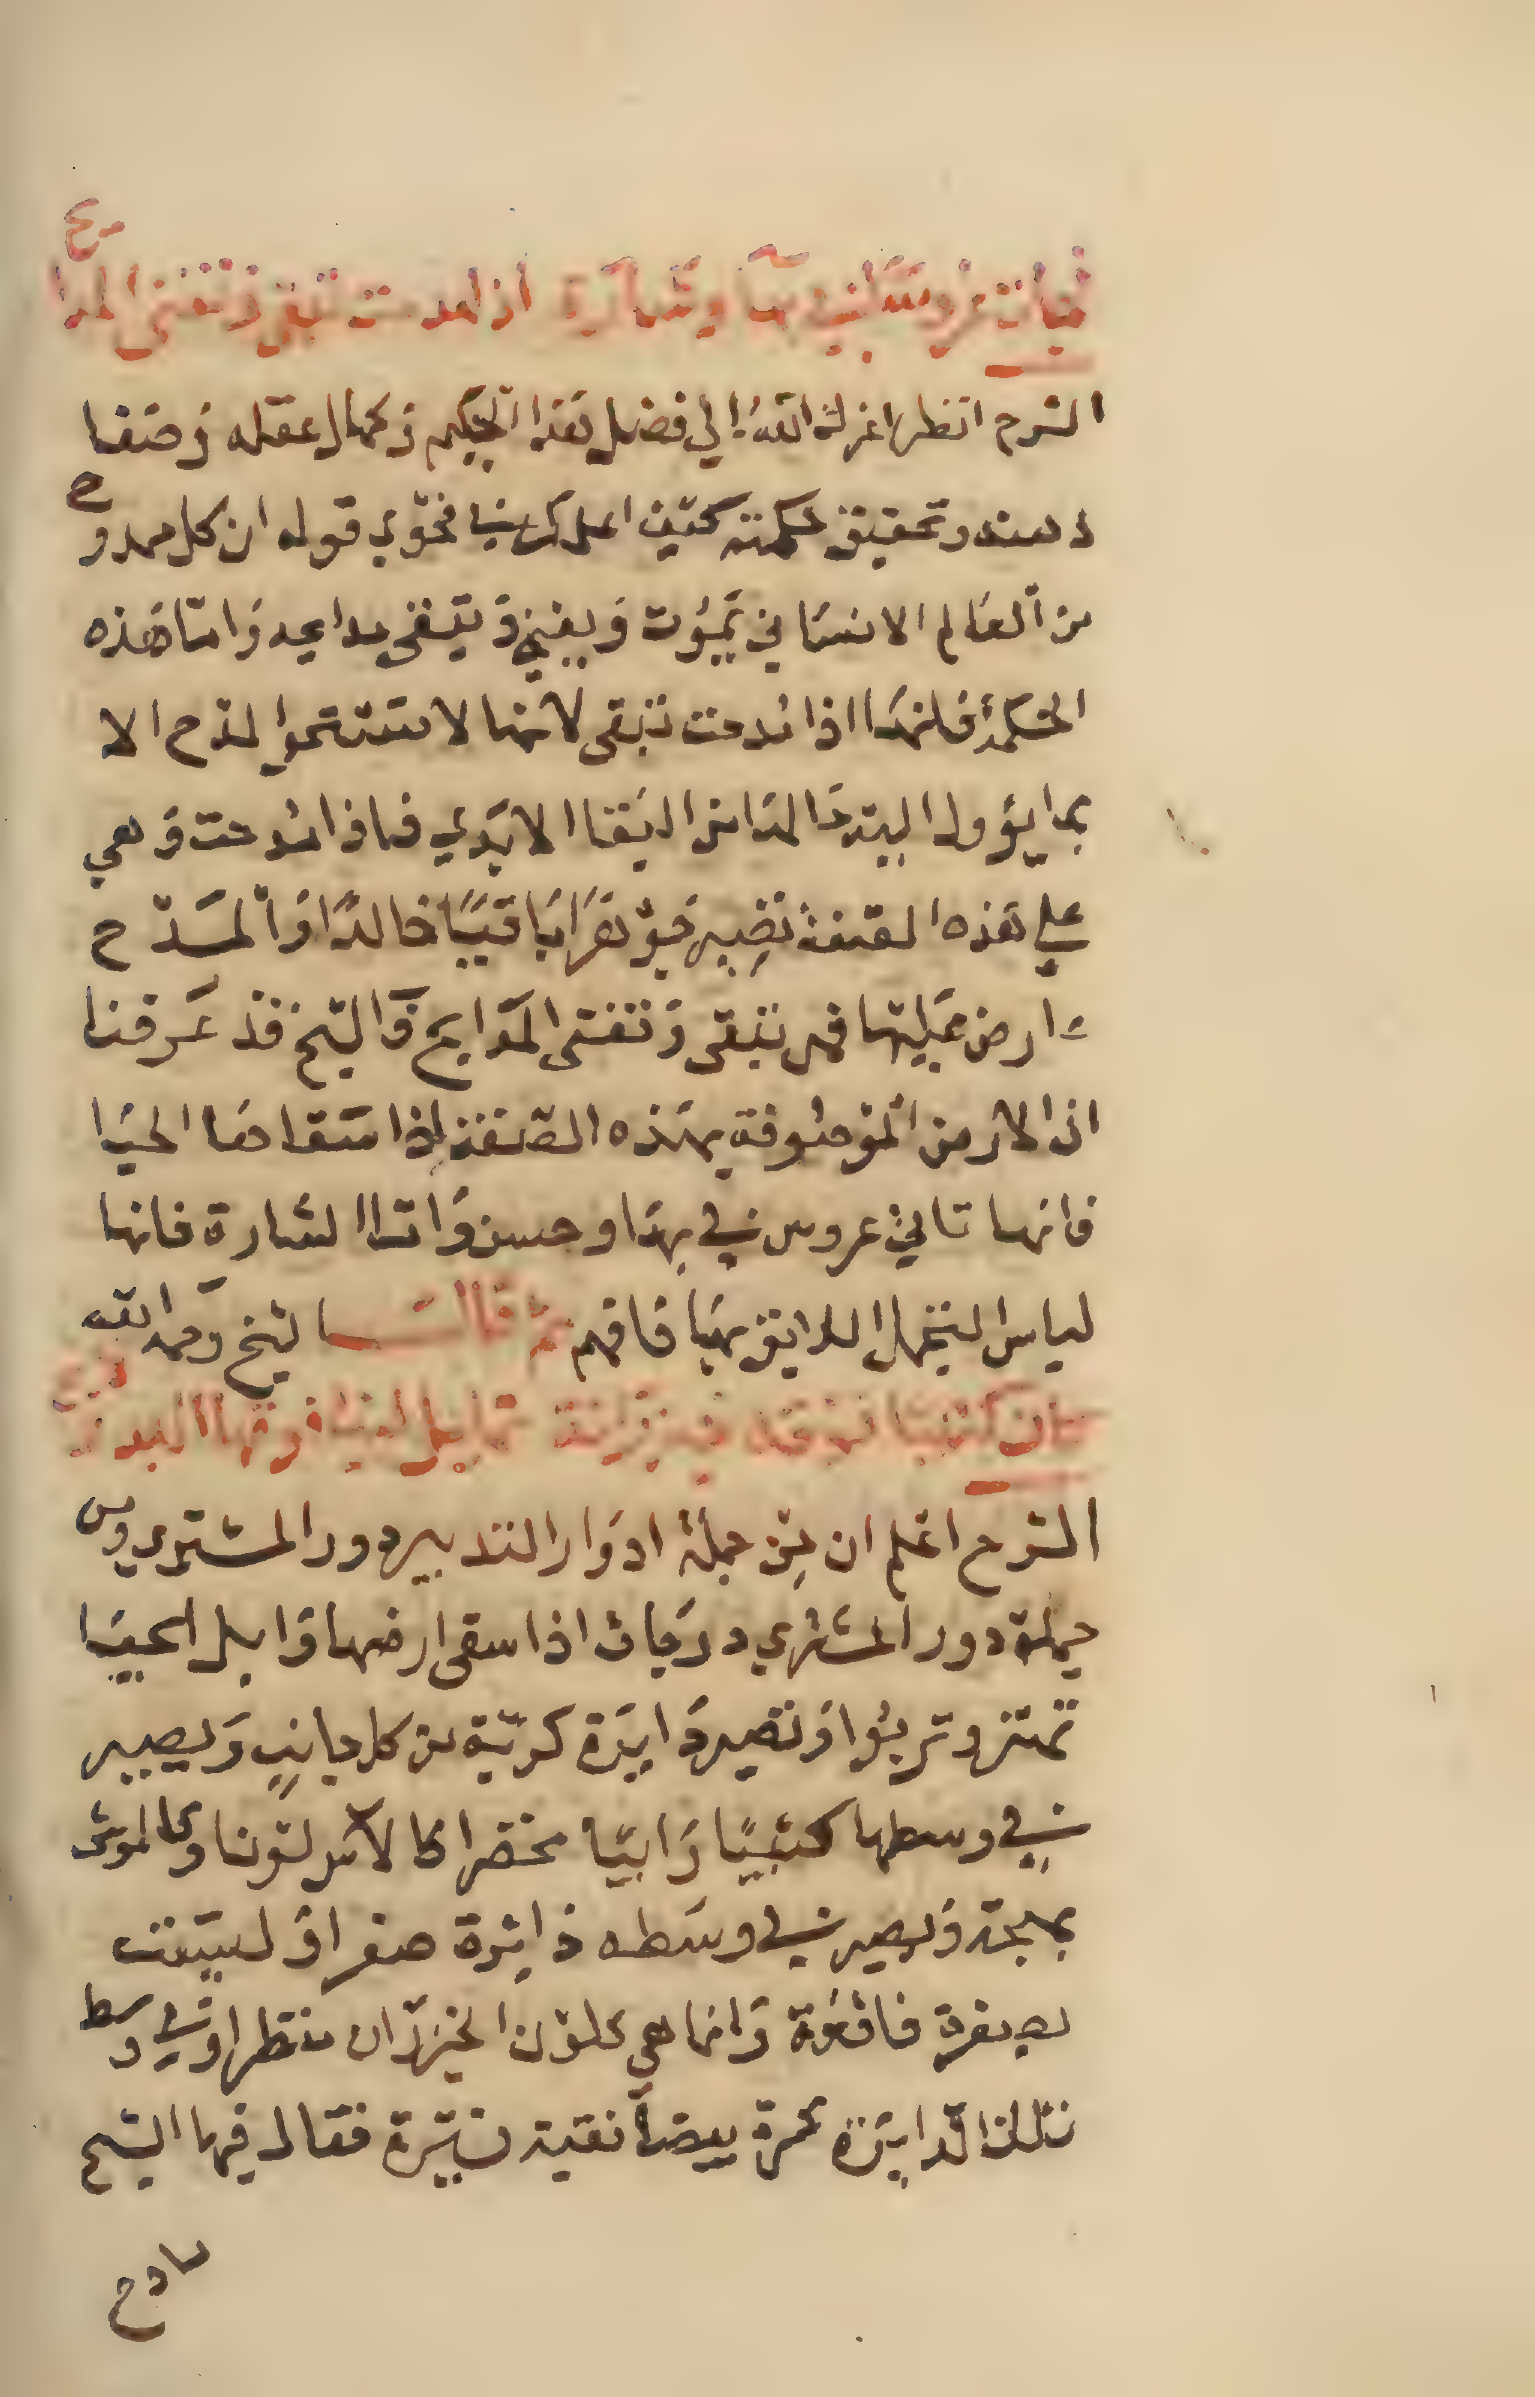 فجات عروسا في بها وشارة اذا مدحت تبقى وتفنى المدايح
الشرح انظر اعزك الله الي فضل هذا الحكيم وكمال عقله وصفا
ذهنه وتحقيق حكمته كيف اعلمك في فحوي قوله ان كل ممدوح
من العالم الانساني يموت ويفني وتبقى مدايحه واما هذه
الحكمة فانها اذا مدحت تبقى لانها لا تستحق المدح الا
بما يؤول اليه حالها من البقا الابدي فاذا مدحت وهي
علي هذه الصفة تصير جوهرا باقيا خالدا والمدح
عارض عليها فهي تبقى وتفنى المدايح والشيخ قد عرفنا
ان الارض الموصوفة بهذه الصفة اذا سقاها الحيا
فانها تاتي عروس في بها وحسن واما الشارة فانها
لباس التجمل اللايق بها فافهم ثم قال الشيخ رحمه الله
كان كثيبا فوقه خيزرانة تمايل لينا فوقها البدر
الشرح اعلم ان من جملة ادوار التدبير دور المشتري ومن
جملة دور المشتري درجات اذا سقى ارضها وابل الحيا
تهتز وتربوا وتصير دايرة كرية من كل جانب ويصير
في وسطها كثيبا رابيا مخضرا كالاس لونا وكالموشى
بهجة ويصير في وسطه دائرة صفرا وليست
بصفرة فاقعة وانما هي كلون الخيزران منظرا وفي وسط
تلك الدايرة حمرة بيضا نقية نيرة فقال فيها الشيخ